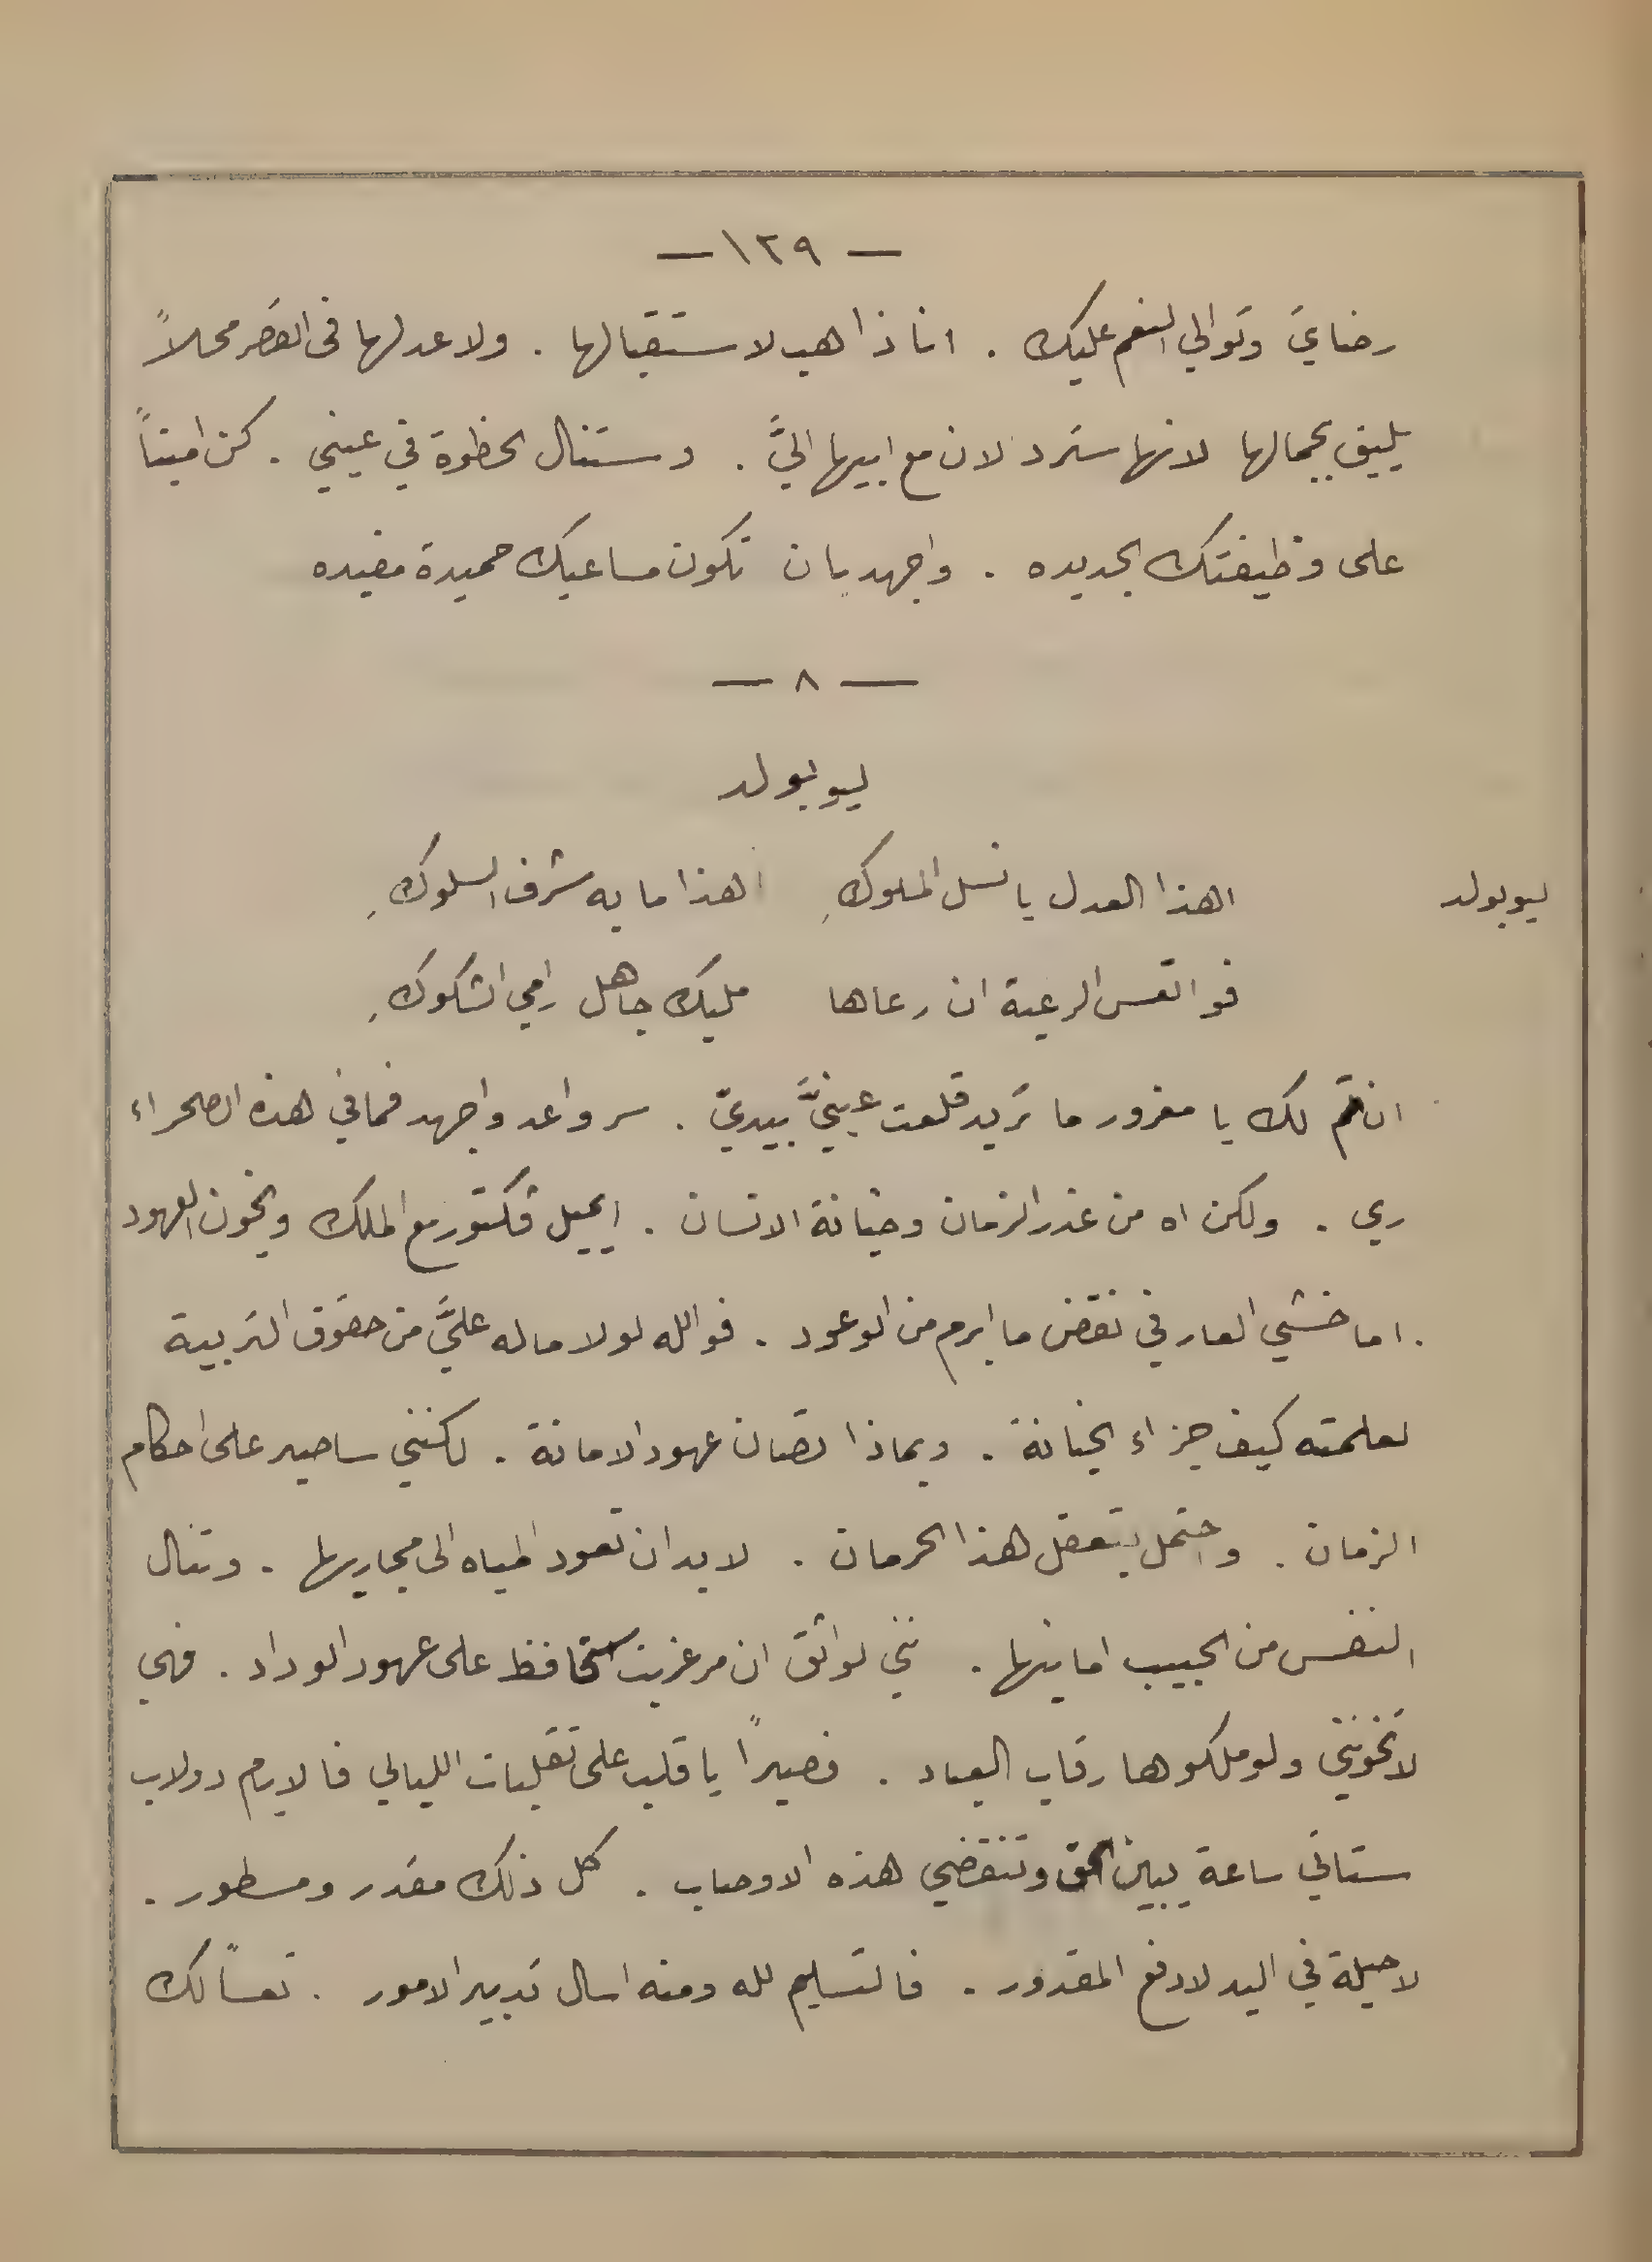 — ١٢٩ —
رضايَ وتوالي النعم عليك . انا ذاهب لاستقبالها . ولاعدلها في القصر محلاً
يليق بجمالها لانها سترد لان مع ابيها اليَّ . وستنال الحظوة في عيني . كن اميناً
على وظيفتك الجديده . واجهد بان تكون مساعيك حميدة مفيده
— ٨ —
ليوبولد
ليوبولد اهذا العدل يا نسل الملوكِ اهذا ما به شرف السلوكِ
فوا تعس الرعية ان رعاها مليك جاهل رامي الشكوكِ
ان تم لك يا مغرور ما تريد قلعت عينيَّ بيديّ . سر واعد واجهد فما في هذه الصحراء
ري . ولكن اه من غدر الزمان وخيانة الانسان . ايميل فكتور مع الملك ويخون العهود
. اما خشي العار في نقض ما ابرم من الوعود . فوالله لولا ما له عليَّ من حقوق التربية
لعلمته كيف جزاء الخيانة . وبماذا تصان عهود الامانة . لكنني ساصبر على احكام
الزمان . واحتمل بتعقل هذا الحرمان . لا بد ان تعود المياه الى مجاريها . وتنال
النفس من الحبيب امانيها . نني لواثق ان مرغريت ستحافظ على عهود الوداد . فهي
لا تخونني ولو ملكوها رقاب العباد . فصبراً يا قلب على تقلبات الليالي فالايام دولاب
ستاتي ساعة يبين الحق وتنقضي هذه الاوصاب . كل ذلك مقدر ومسطور .
لا حيلة في اليد لدفع المقدور . فالتسليم لله ومنه اسال تدبير الامور . تعساً لك